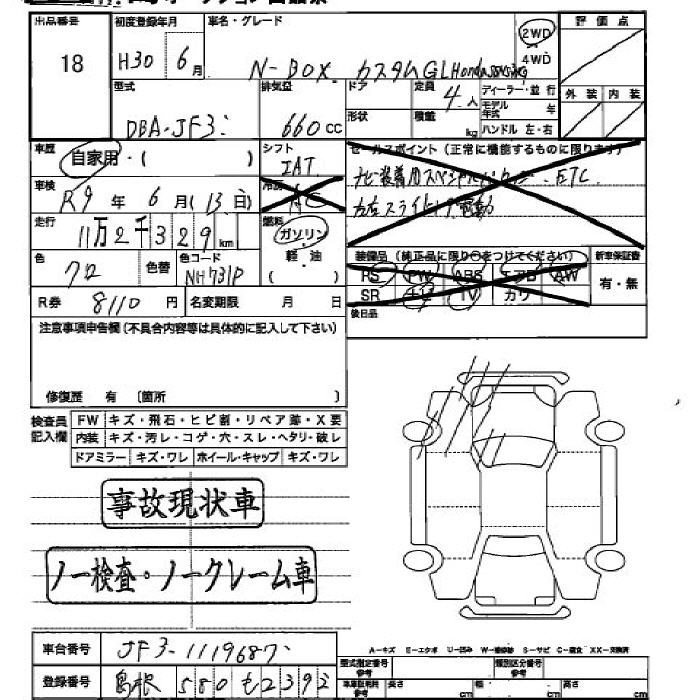 出品番号 初度登録年月 車名・グレード 評価点
18 H30 6月 N-BOX カスタムGL Honda SENSING 2WD 4WD
型式 排気量 ドア 定員 4人 ディーラー・並行 外装 内装
モデル年式 年
DBA-JF3 660cc 形状 積載 kg ハンドル 左・右
車歴 自家用・( ) シフト IAT セールスポイント(正常に機能するものに限ります)
車検 R9年6月(13日) 冷房 AC ナビ装着用スペシャルパッケージ ETC
左右スライドドア電動
走行 11万2千329km 燃料 ガソリン 軽油 ( )
装備品(純正品に限り○をつけてください) 新車保証書
色 クロ 色替 色コード NH731P PS PW ABS エアB AW 有・無
R券 8110円 名変期限 月 日 SR ナビ TV カワ
注意事項申告欄(不具合内容等は具体的に記入して下さい) 後日品
修復歴 有 〔箇所 〕
検査員記入欄 FW キズ・飛石・ヒビ割・リペア跡・X要
内装 キズ・汚レ・コゲ・穴・スレ・ヘタリ・破レ
ドアミラー キズ・ワレ ホイール・キャップ キズ・ワレ
事故現状車
ノー検査・ノークレーム車
車台番号 JF3-1119687
A-キズ E-エクボ U-凹み W-補修跡 S-サビ C-腐食 XX-交換済
登録番号 島根 580 も 2392
型式指定番号 参考 類別区分番号 参考
車庫証明用 参考 長さ cm 幅 cm 高さ cm